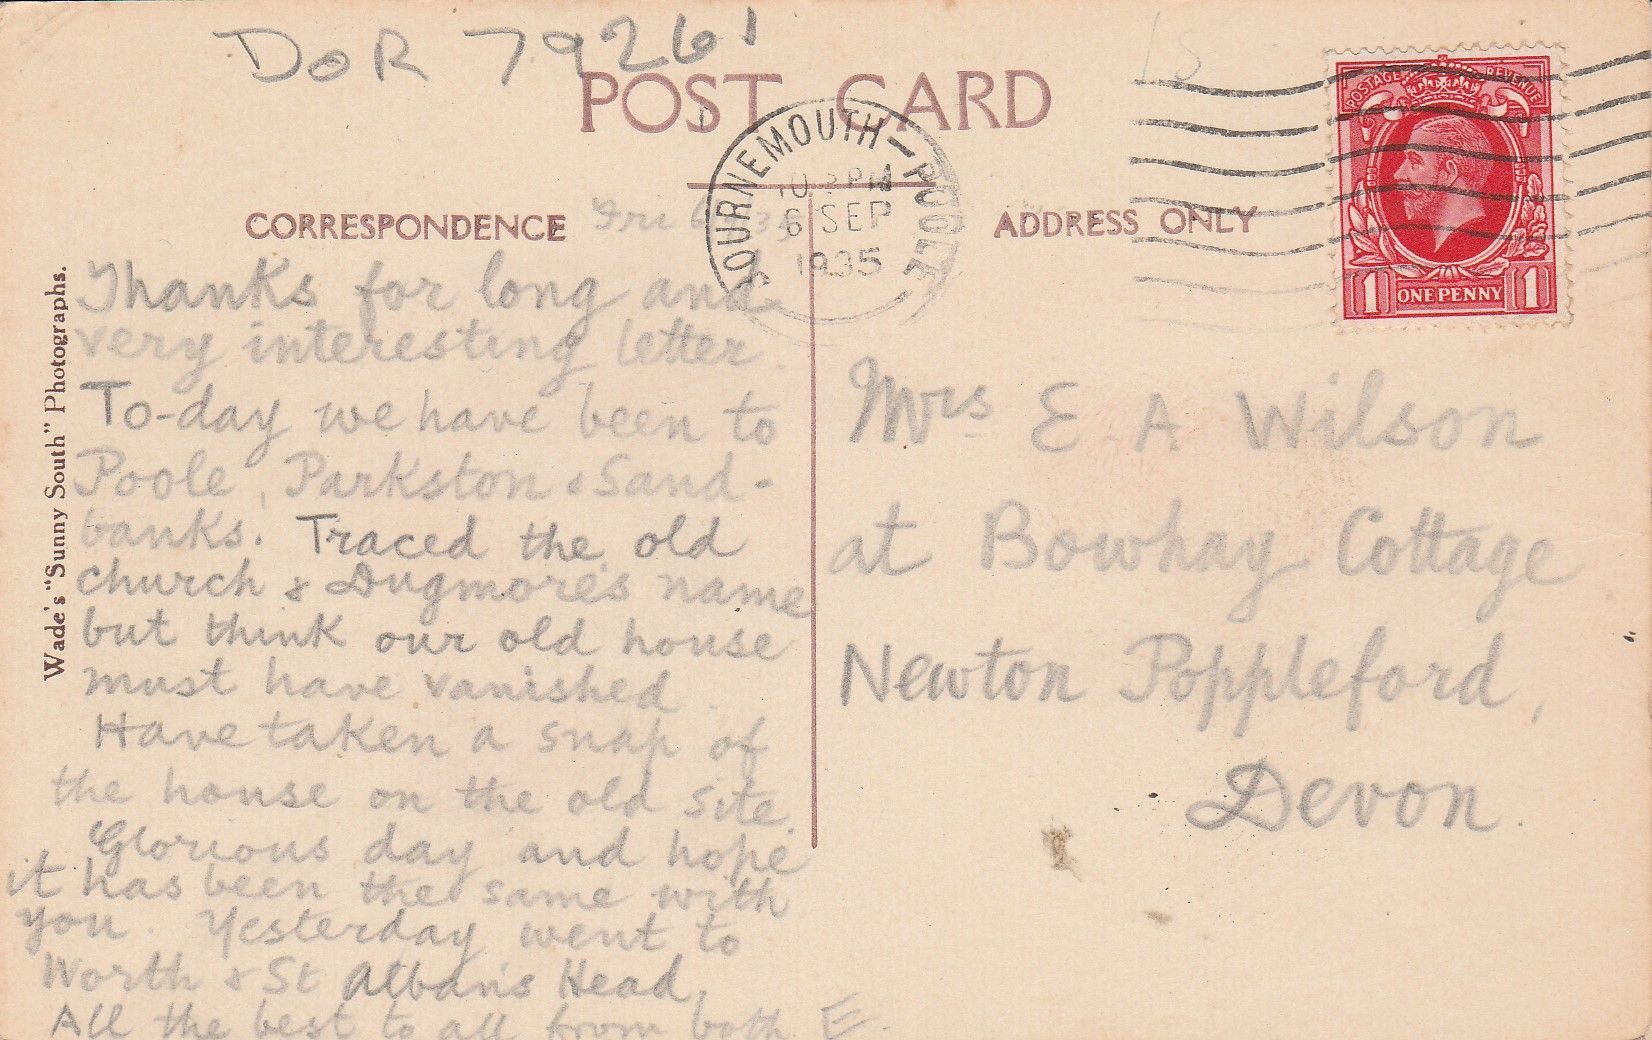 DOR 79261
POST CARD
BOURNEMOUTH-POOLE
PM
6 SEP
1935
POSTAGE REVENUE
1 ONE PENNY 1
CORRESPONDENCE
Fri 6
ADDRESS ONLY
Wade's "Sunny South" Photographs.
Thanks for long and
very interesting letter.
To-day we have been to
Poole, Parkston & Sand-
banks. Traced the old
church & Dugmore's name
but think our old house
must have vanished.
Have taken a snap of
the house on the old site.
Glorious day and hope
it has been the same with
you. Yesterday went to
Worth & St Alban's Head.
All the best to all from both E.
Mrs E A Wilson
at Bowhay Cottage
Newton Poppleford,
Devon.